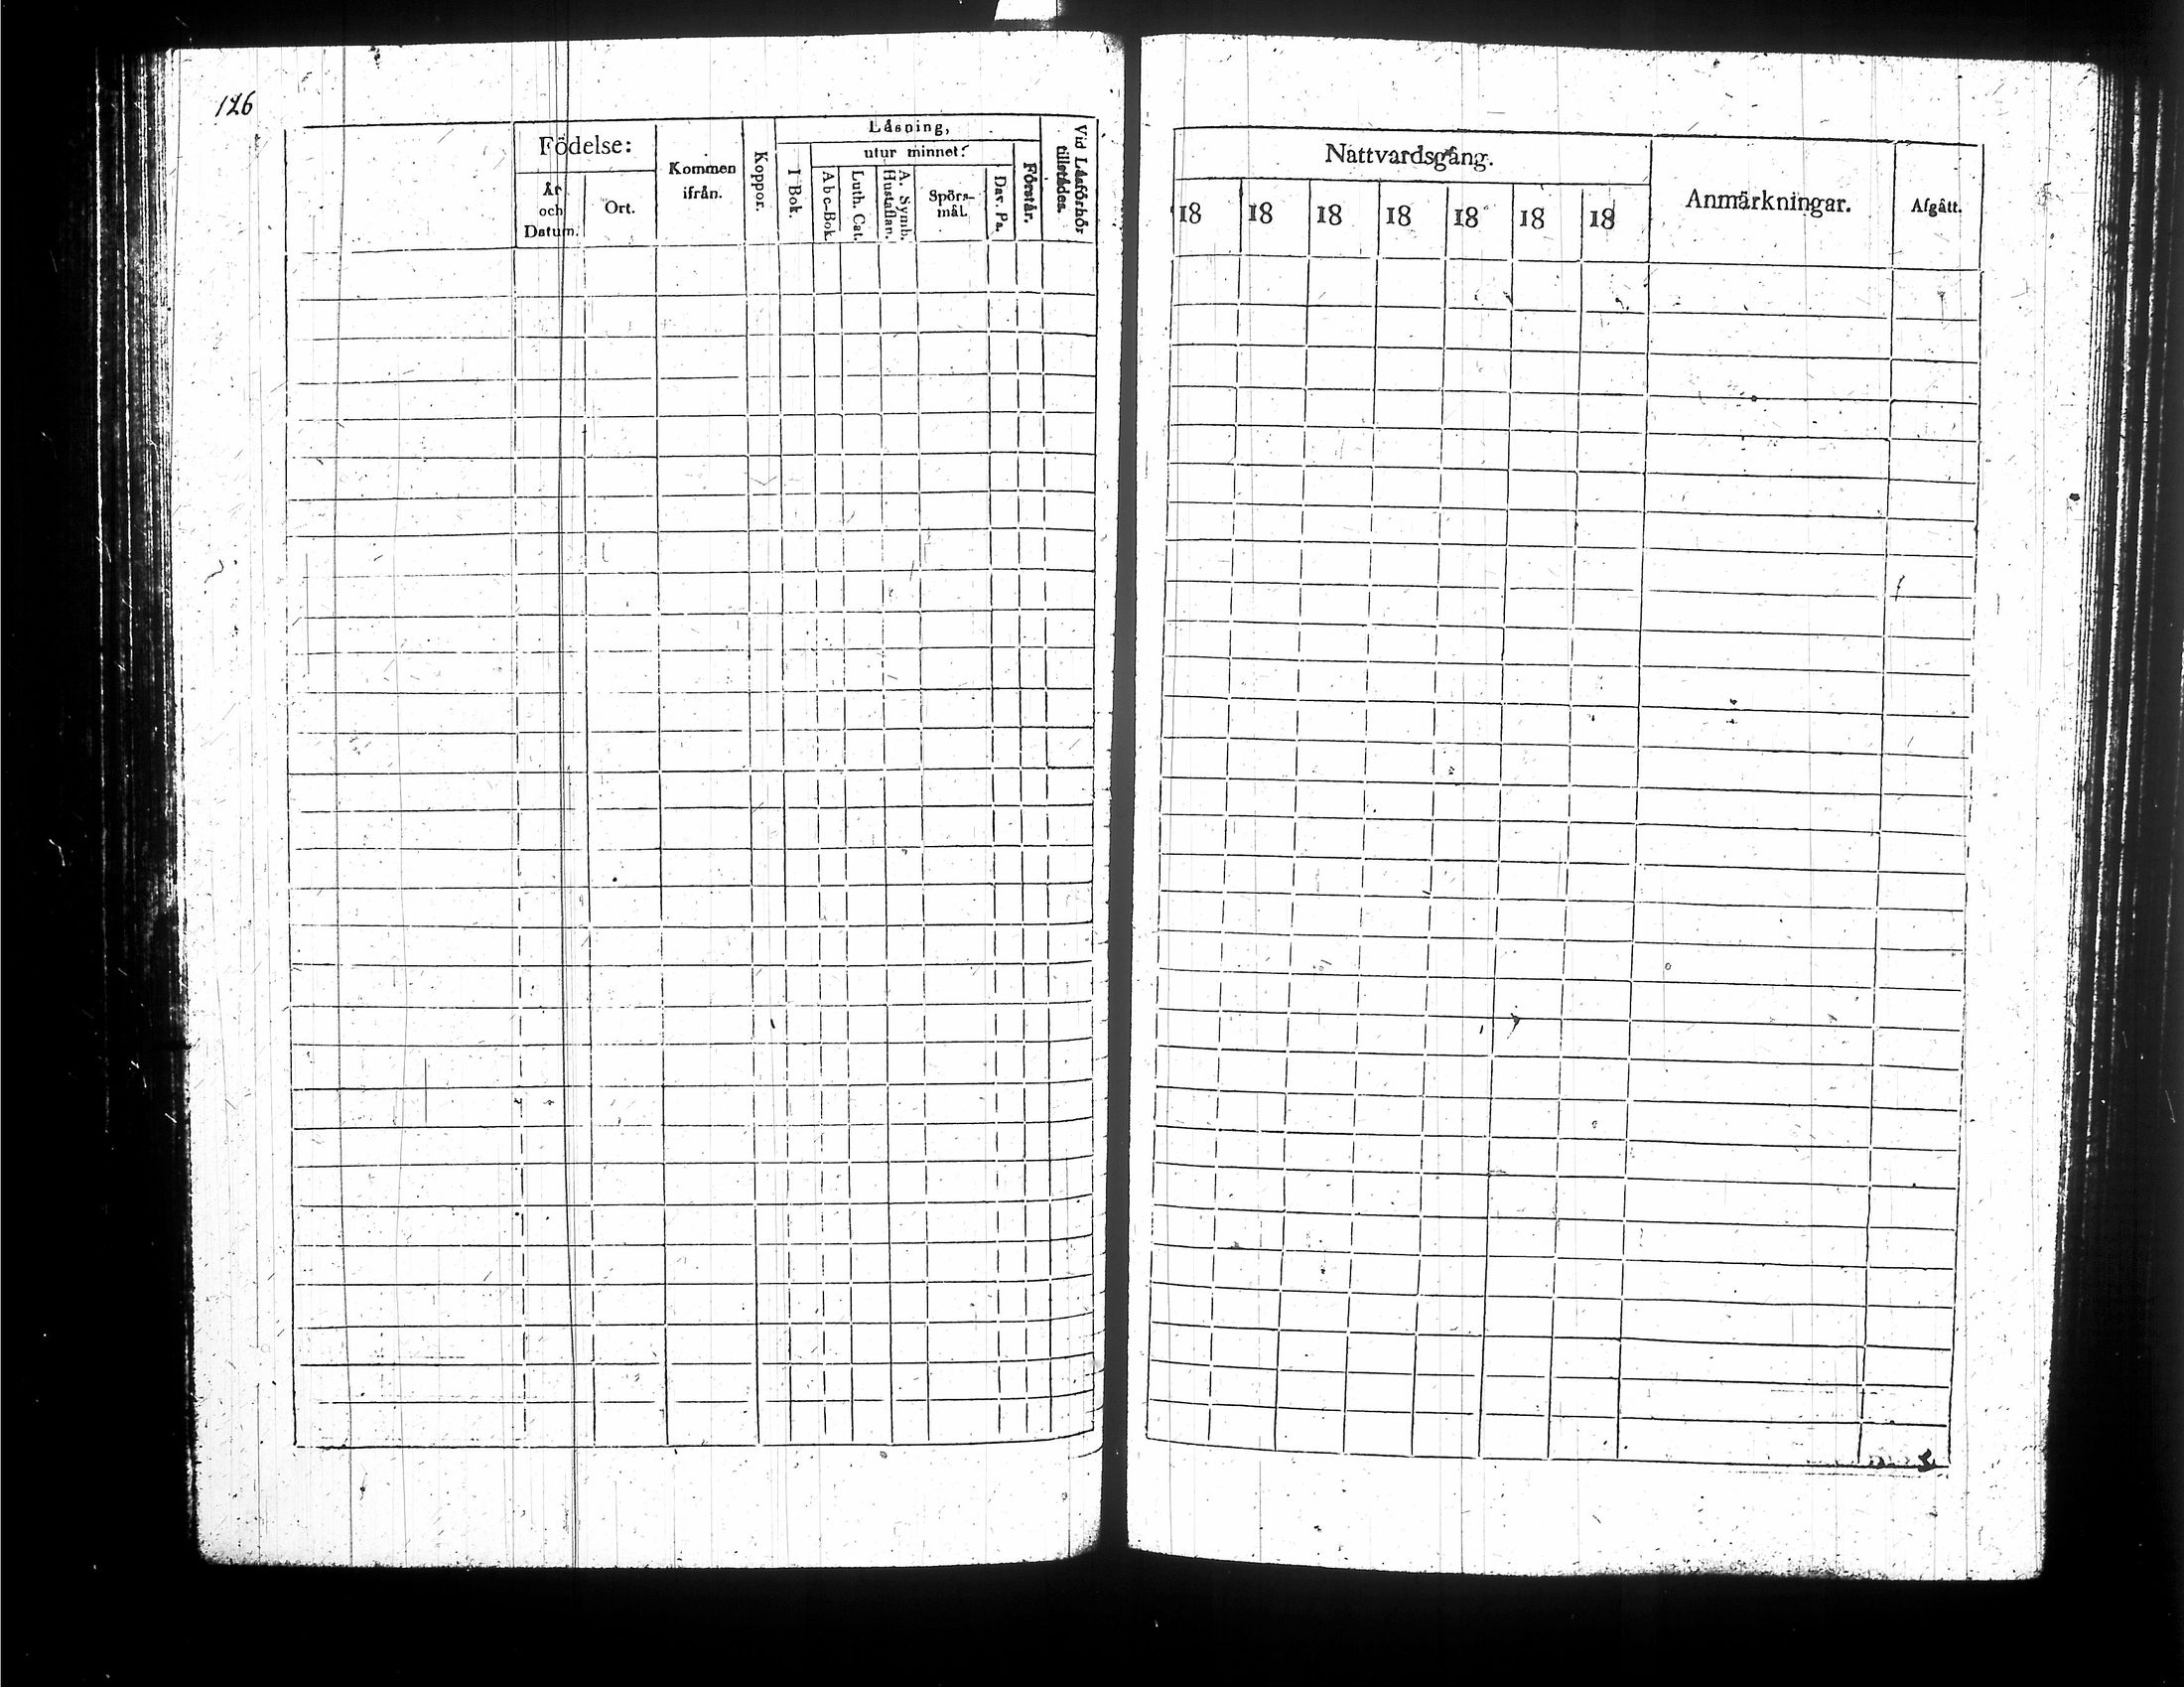 126
Födelse:
År
och
Datum.
Ort.
Kommen
ifrån.
Koppor.
Låsning,
I Bok.
utur minnet:
A b c-Bok.
Luth. Cat.
A. Symb.
Hustaflan.
Spörs-
mål.
Dav. Ps.
Förstår.
Vid Låsförhör
tillstådes.
Nattvardsgång.
18 18 18 18 18 18 18
Anmärkningar.
Afgått.